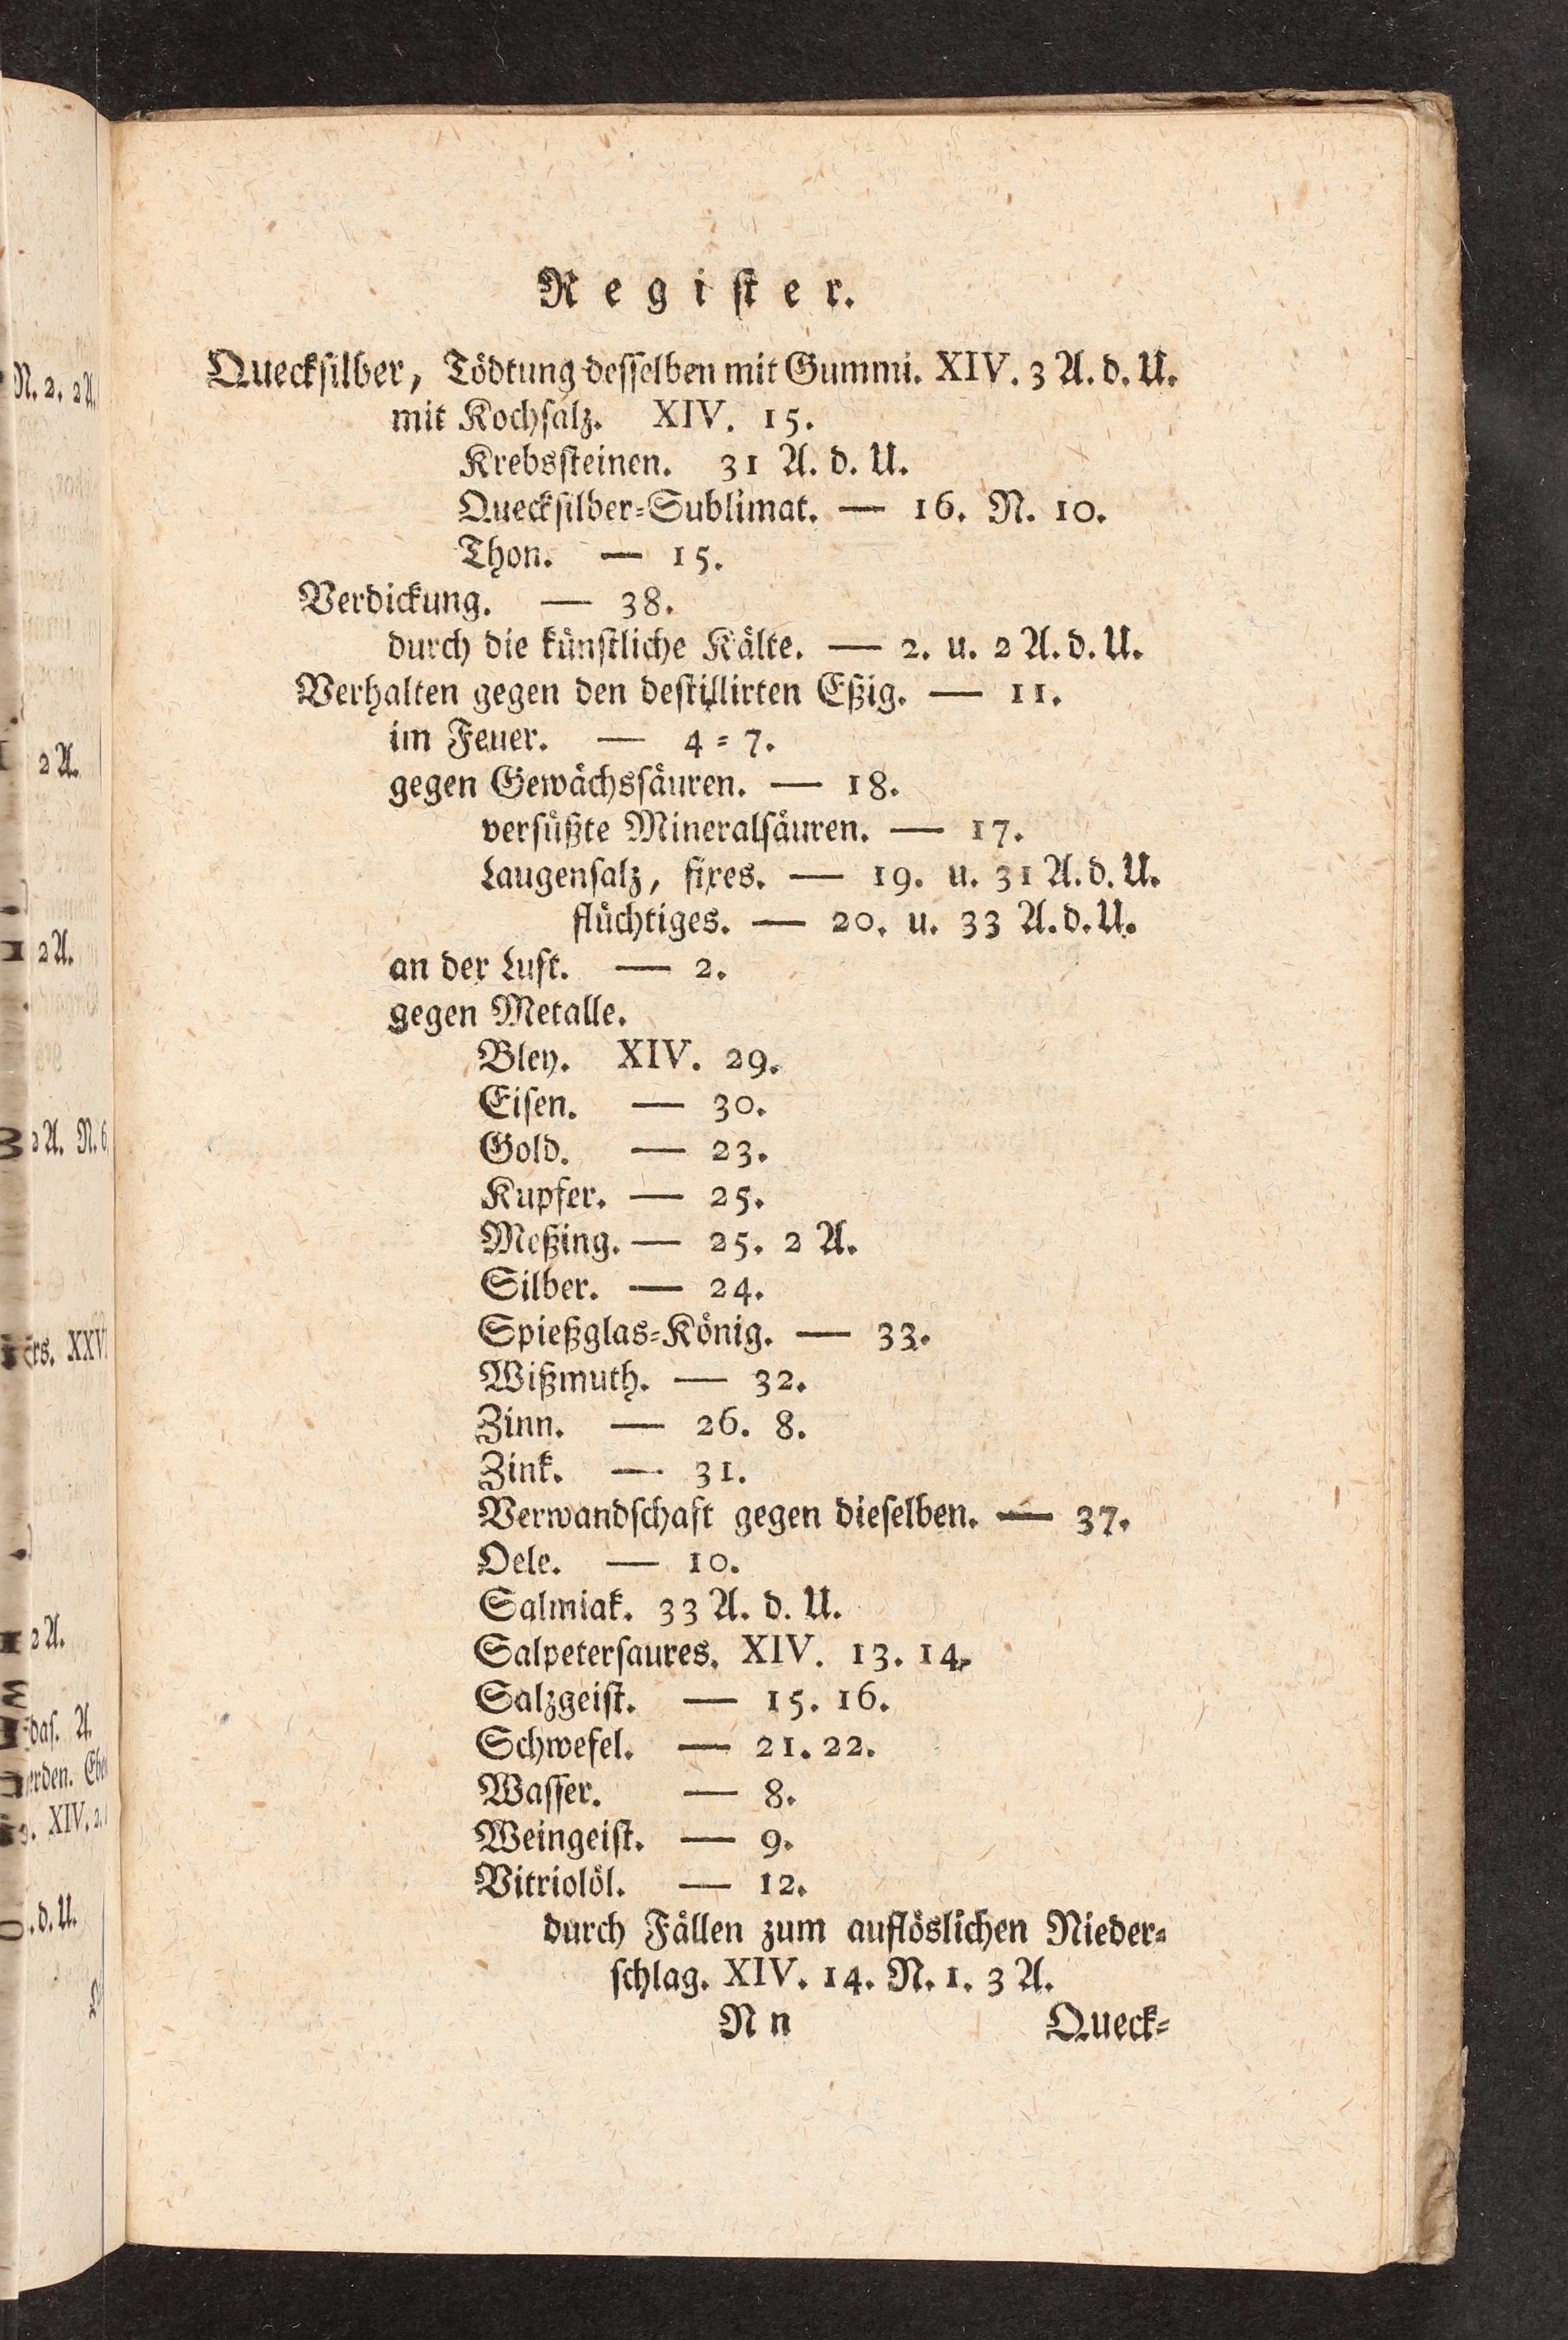 Register.
Queckſilber, Tödtung deſſelben mit Gummi. XIV. 3 A. d. U.
mit Kochſalz. XIV. 15.
Krebsſteinen. 31 A. d. U.
Queckſilber-Sublimat. — 16. N. 10.
Thon. — 15.
Verdickung. — 38.
durch die künſtliche Kälte. — 2. u. 2 A. d. U.
Verhalten gegen den deſtillirten Eßig. — 11.
im Feuer. — 4-7.
gegen Gewächsſäuren. — 18.
verſüßte Mineralſäuren. — 17.
Laugenſalz, fixes. — 19. u. 31 A. d. U.
flüchtiges. — 20. u. 33 A. d. U.
an der Luft. — 2.
gegen Metalle.
Bley. XIV. 29.
Eiſen. — 30.
Gold. — 23.
Kupfer. — 25.
Meßing. — 25. 2 A.
Silber. — 24.
Spießglas-König. — 33.
Wißmuth. — 32.
Zinn. — 26. 8.
Zink. — 31.
Verwandſchaft gegen dieſelben. — 37.
Oele. — 10.
Salmiak. 33 A. d. U.
Salpeterſaures. XIV. 13. 14.
Salzgeiſt. — 15. 16.
Schwefel. — 21. 22.
Waſſer. — 8.
Weingeiſt. — 9.
Vitriolöl. — 12.
durch Fällen zum auflöslichen Nieder-
ſchlag. XIV. 14. N. 1. 3 A.
N n Queck-
N. 2. 2 A.
2 A.
2 A.
2 A. N. 6
XXV
2 A.
daſ. A.
XIV. 2.
d. U.